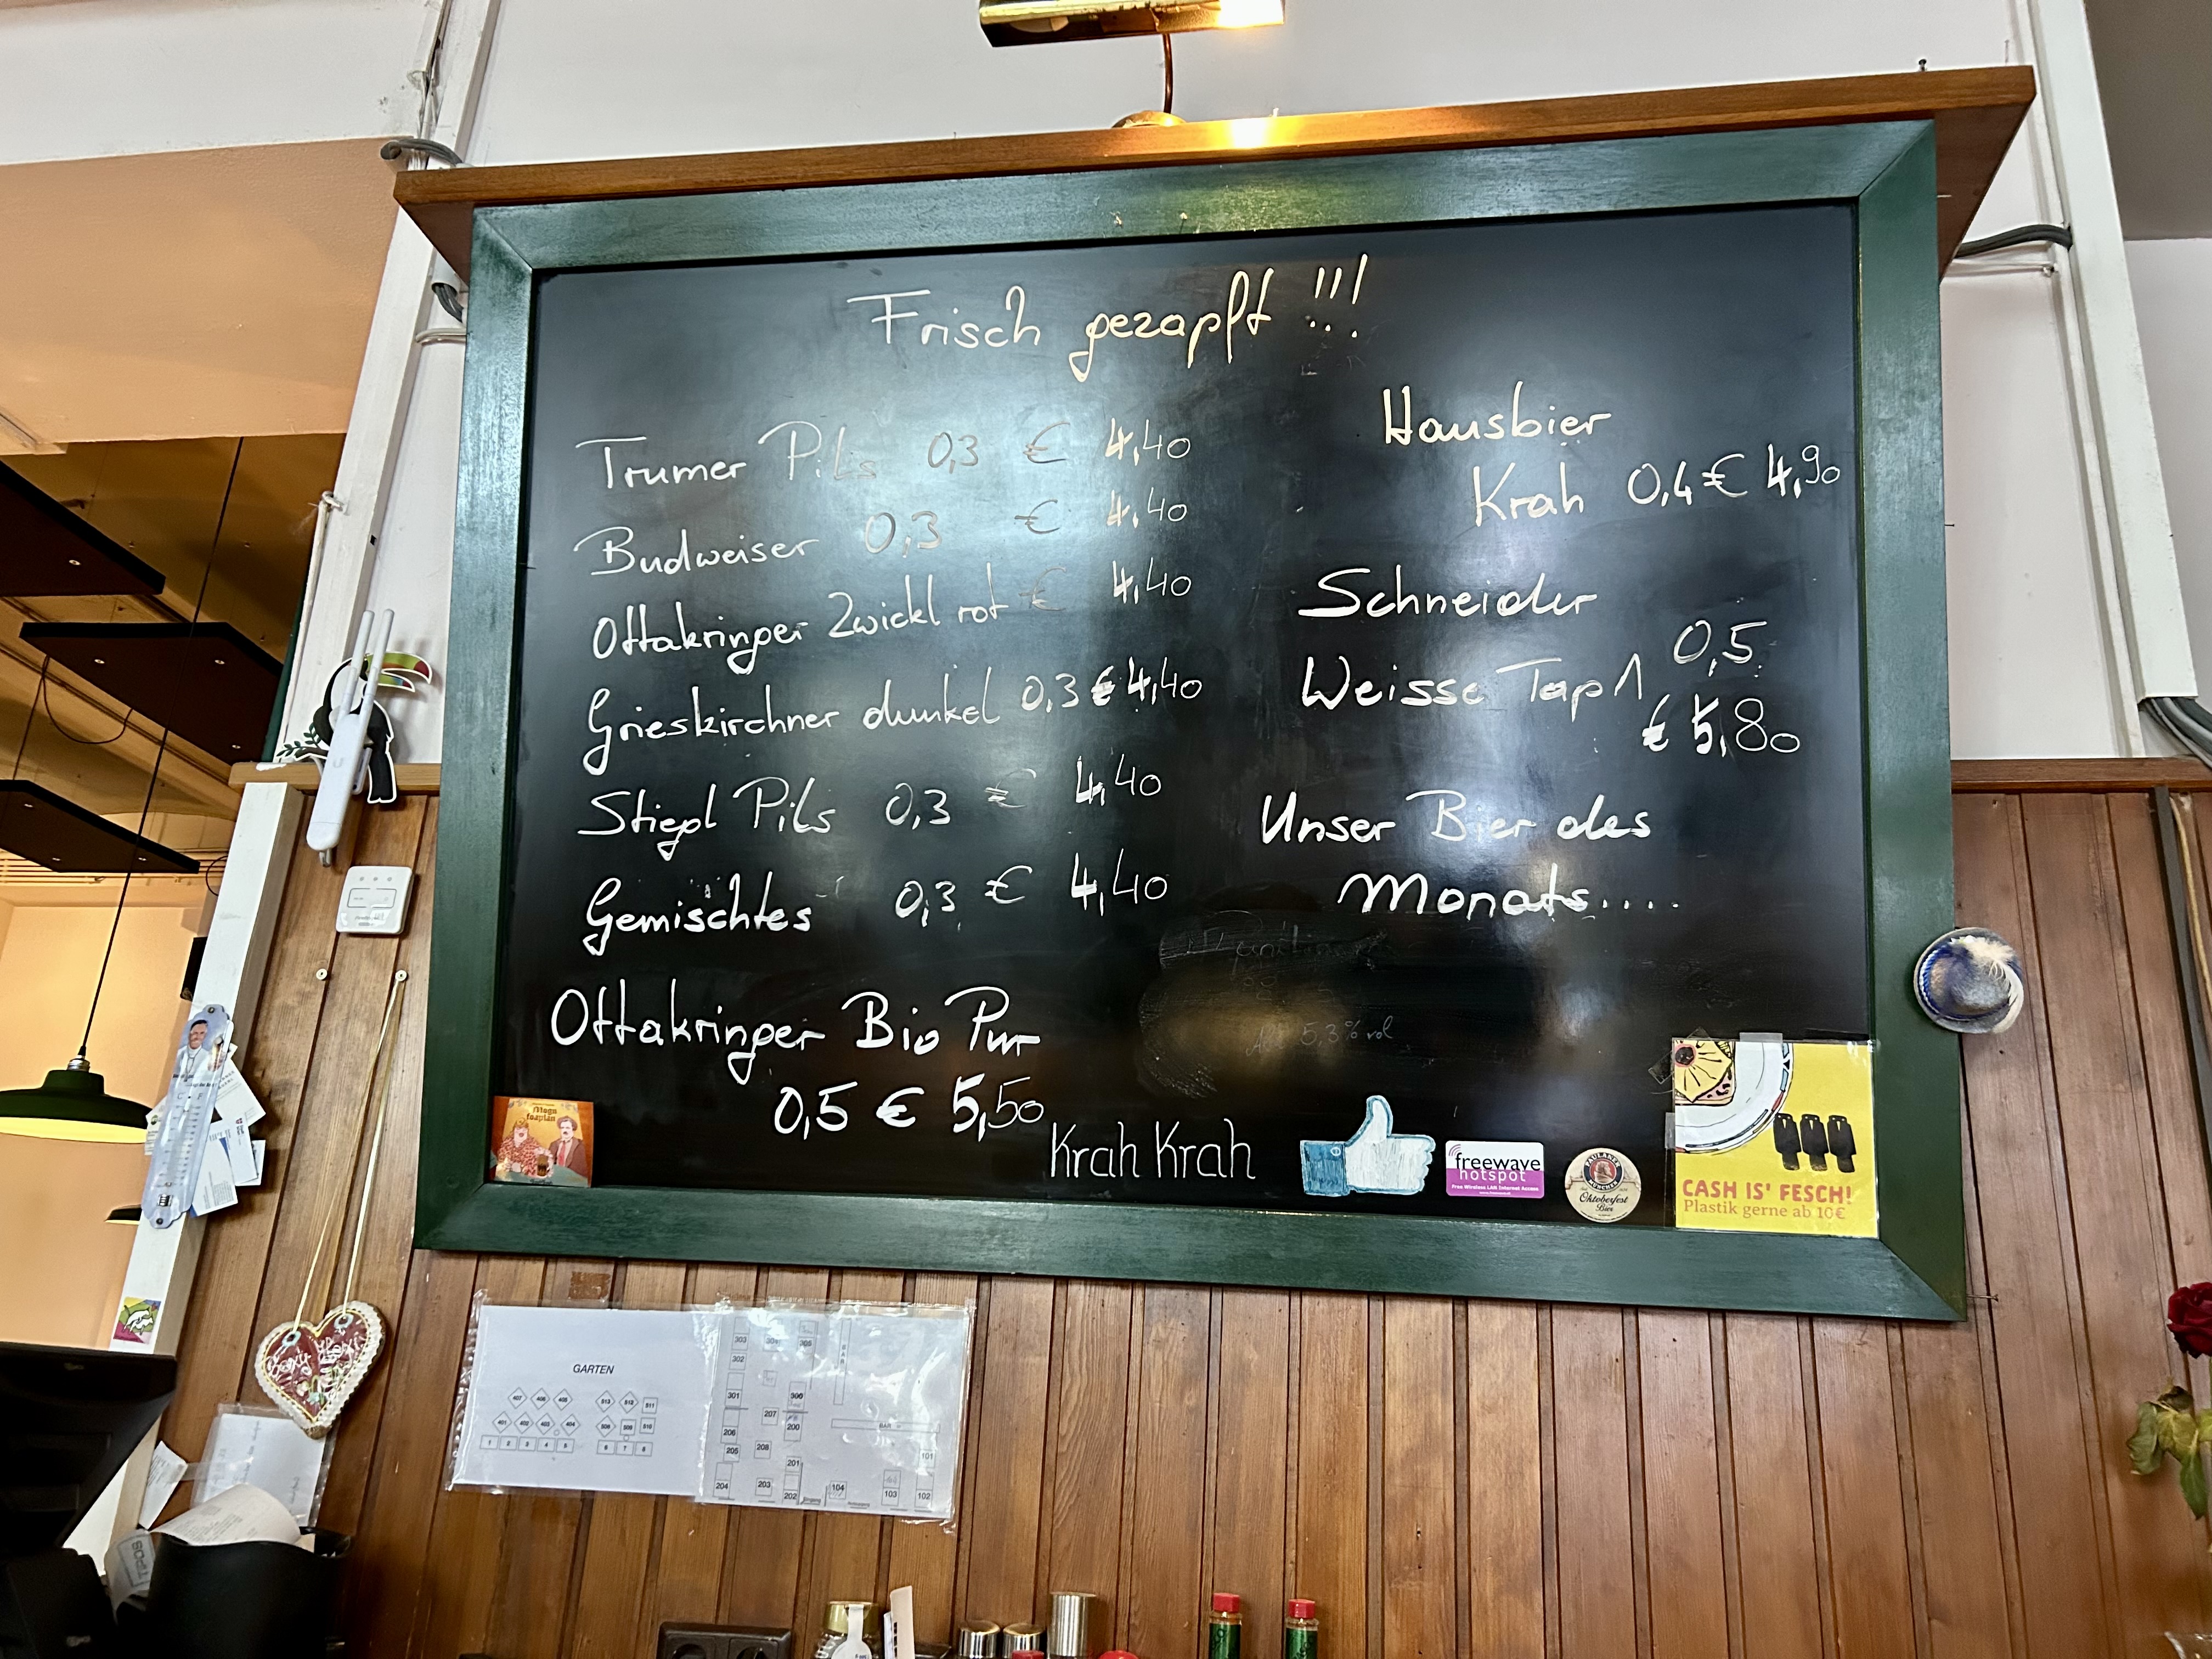 Frisch gezapft !!!
Trumer Pils 0,3 € 4,40
Budweiser 0,3 € 4,40
Ottakringer Zwickl rot € 4,40
Grieskirchner dunkel 0,3 € 4,40
Stiegl Pils 0,3 € 4,40
Gemischtes 0,3 € 4,40
Ottakringer Bio Pur
0,5 € 5,50
Hausbier
Krah 0,4 € 4,90
Schneider
Weisse Tap 1 0,5
€ 5,80
Unser Bier des
Monats....
5,3% vol
Krah Krah
freewave
hotspot
Free Wireless LAN Internet Access
PAULANER
MÜNCHEN
Oktoberfest
Bier
CASH IS' FESCH!
Plastik gerne ab 10€
GARTEN
407 406 405 513 512 511
401 402 403 404 508 509 510
1 2 3 4 5 6 7 8
303 304 305
302
301 300
207 200
206
205 208
201
204 203 202
104 103 102
101
BAR
BAR